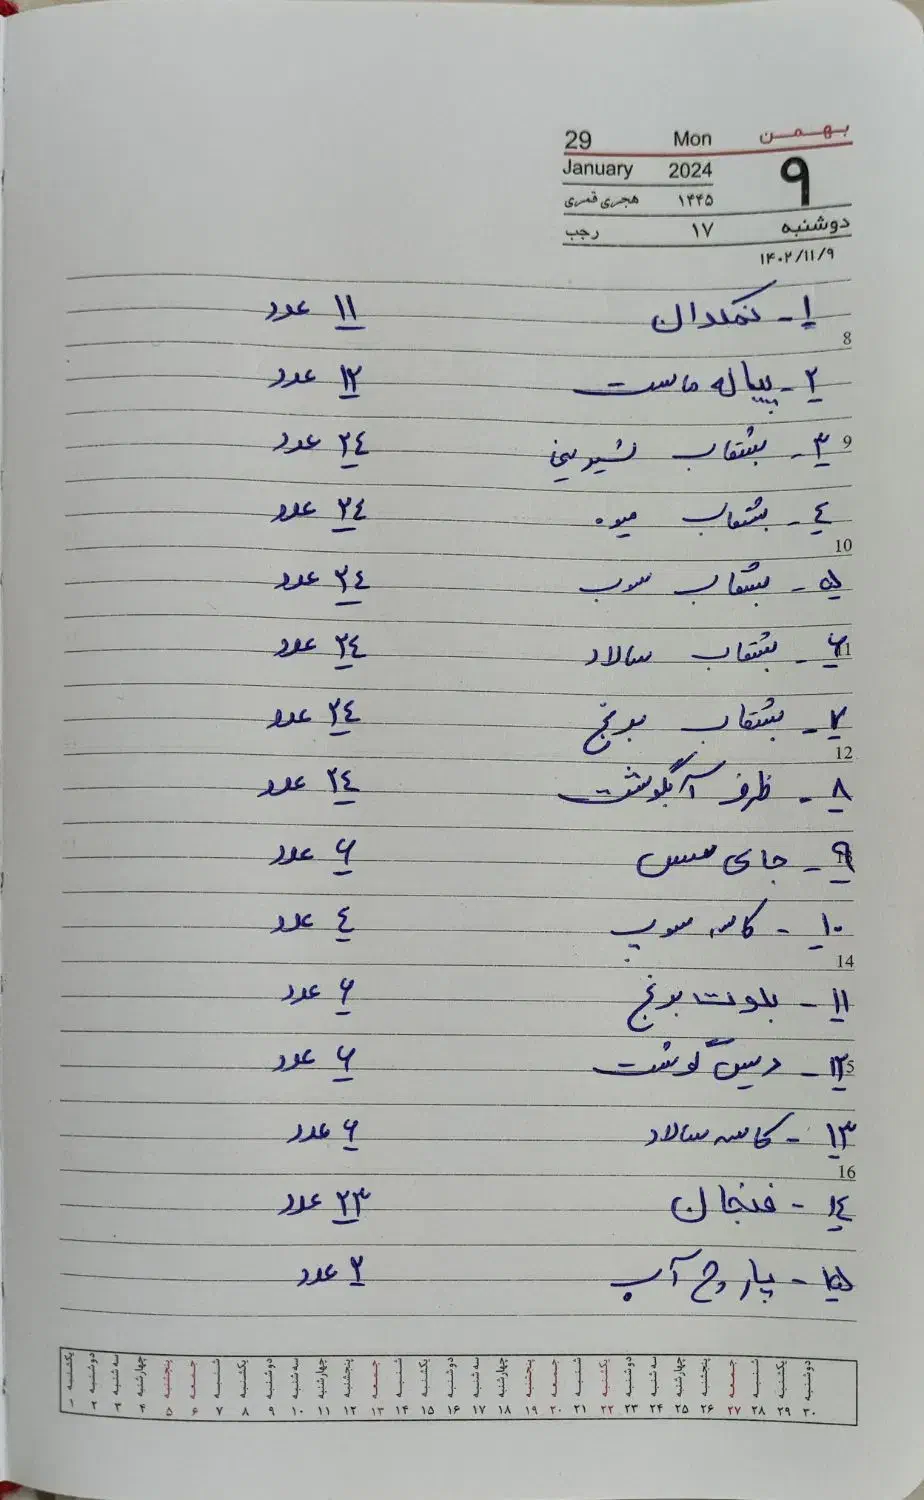 بهمن Mon 29
۹ 2024 January
۱۴۴۵ هجری قمری
دوشنبه ۱۷ رجب
۱۴۰۲/۱۱/۹
۱- نمکدان ۱۱ عدد
8
۲- پیاله ماست ۱۲ عدد
9
۳- بشقاب شیرینی ۲٤ عدد
٤- بشقاب میوه ۲٤ عدد
10
۵- بشقاب سوپ ۲٤ عدد
11
۶- بشقاب سالاد ۲٤ عدد
۷- بشقاب برنج ۲٤ عدد
12
۸- ظرف آبگوشت ۲٤ عدد
13
۹- جای سس ۶ عدد
۱۰- کاسه سوپ ٤ عدد
14
۱۱- بلوت برنج ۶ عدد
15
۱۲- دیس گوشت ۶ عدد
۱۳- کاسه سالاد ۶ عدد
16
۱٤- فنجان ۲۳ عدد
۱۵- پارچ آب ۲ عدد
یکشنبه دوشنبه سه شنبه چهارشنبه پنجشنبه جمعه شنبه یکشنبه دوشنبه سه شنبه چهارشنبه پنجشنبه جمعه شنبه یکشنبه دوشنبه سه شنبه چهارشنبه پنجشنبه جمعه شنبه یکشنبه دوشنبه سه شنبه چهارشنبه پنجشنبه جمعه شنبه یکشنبه دوشنبه
۱ ۲ ۳ ۴ ۵ ۶ ۷ ۸ ۹ ۱۰ ۱۱ ۱۲ ۱۳ ۱۴ ۱۵ ۱۶ ۱۷ ۱۸ ۱۹ ۲۰ ۲۱ ۲۲ ۲۳ ۲۴ ۲۵ ۲۶ ۲۷ ۲۸ ۲۹ ۳۰